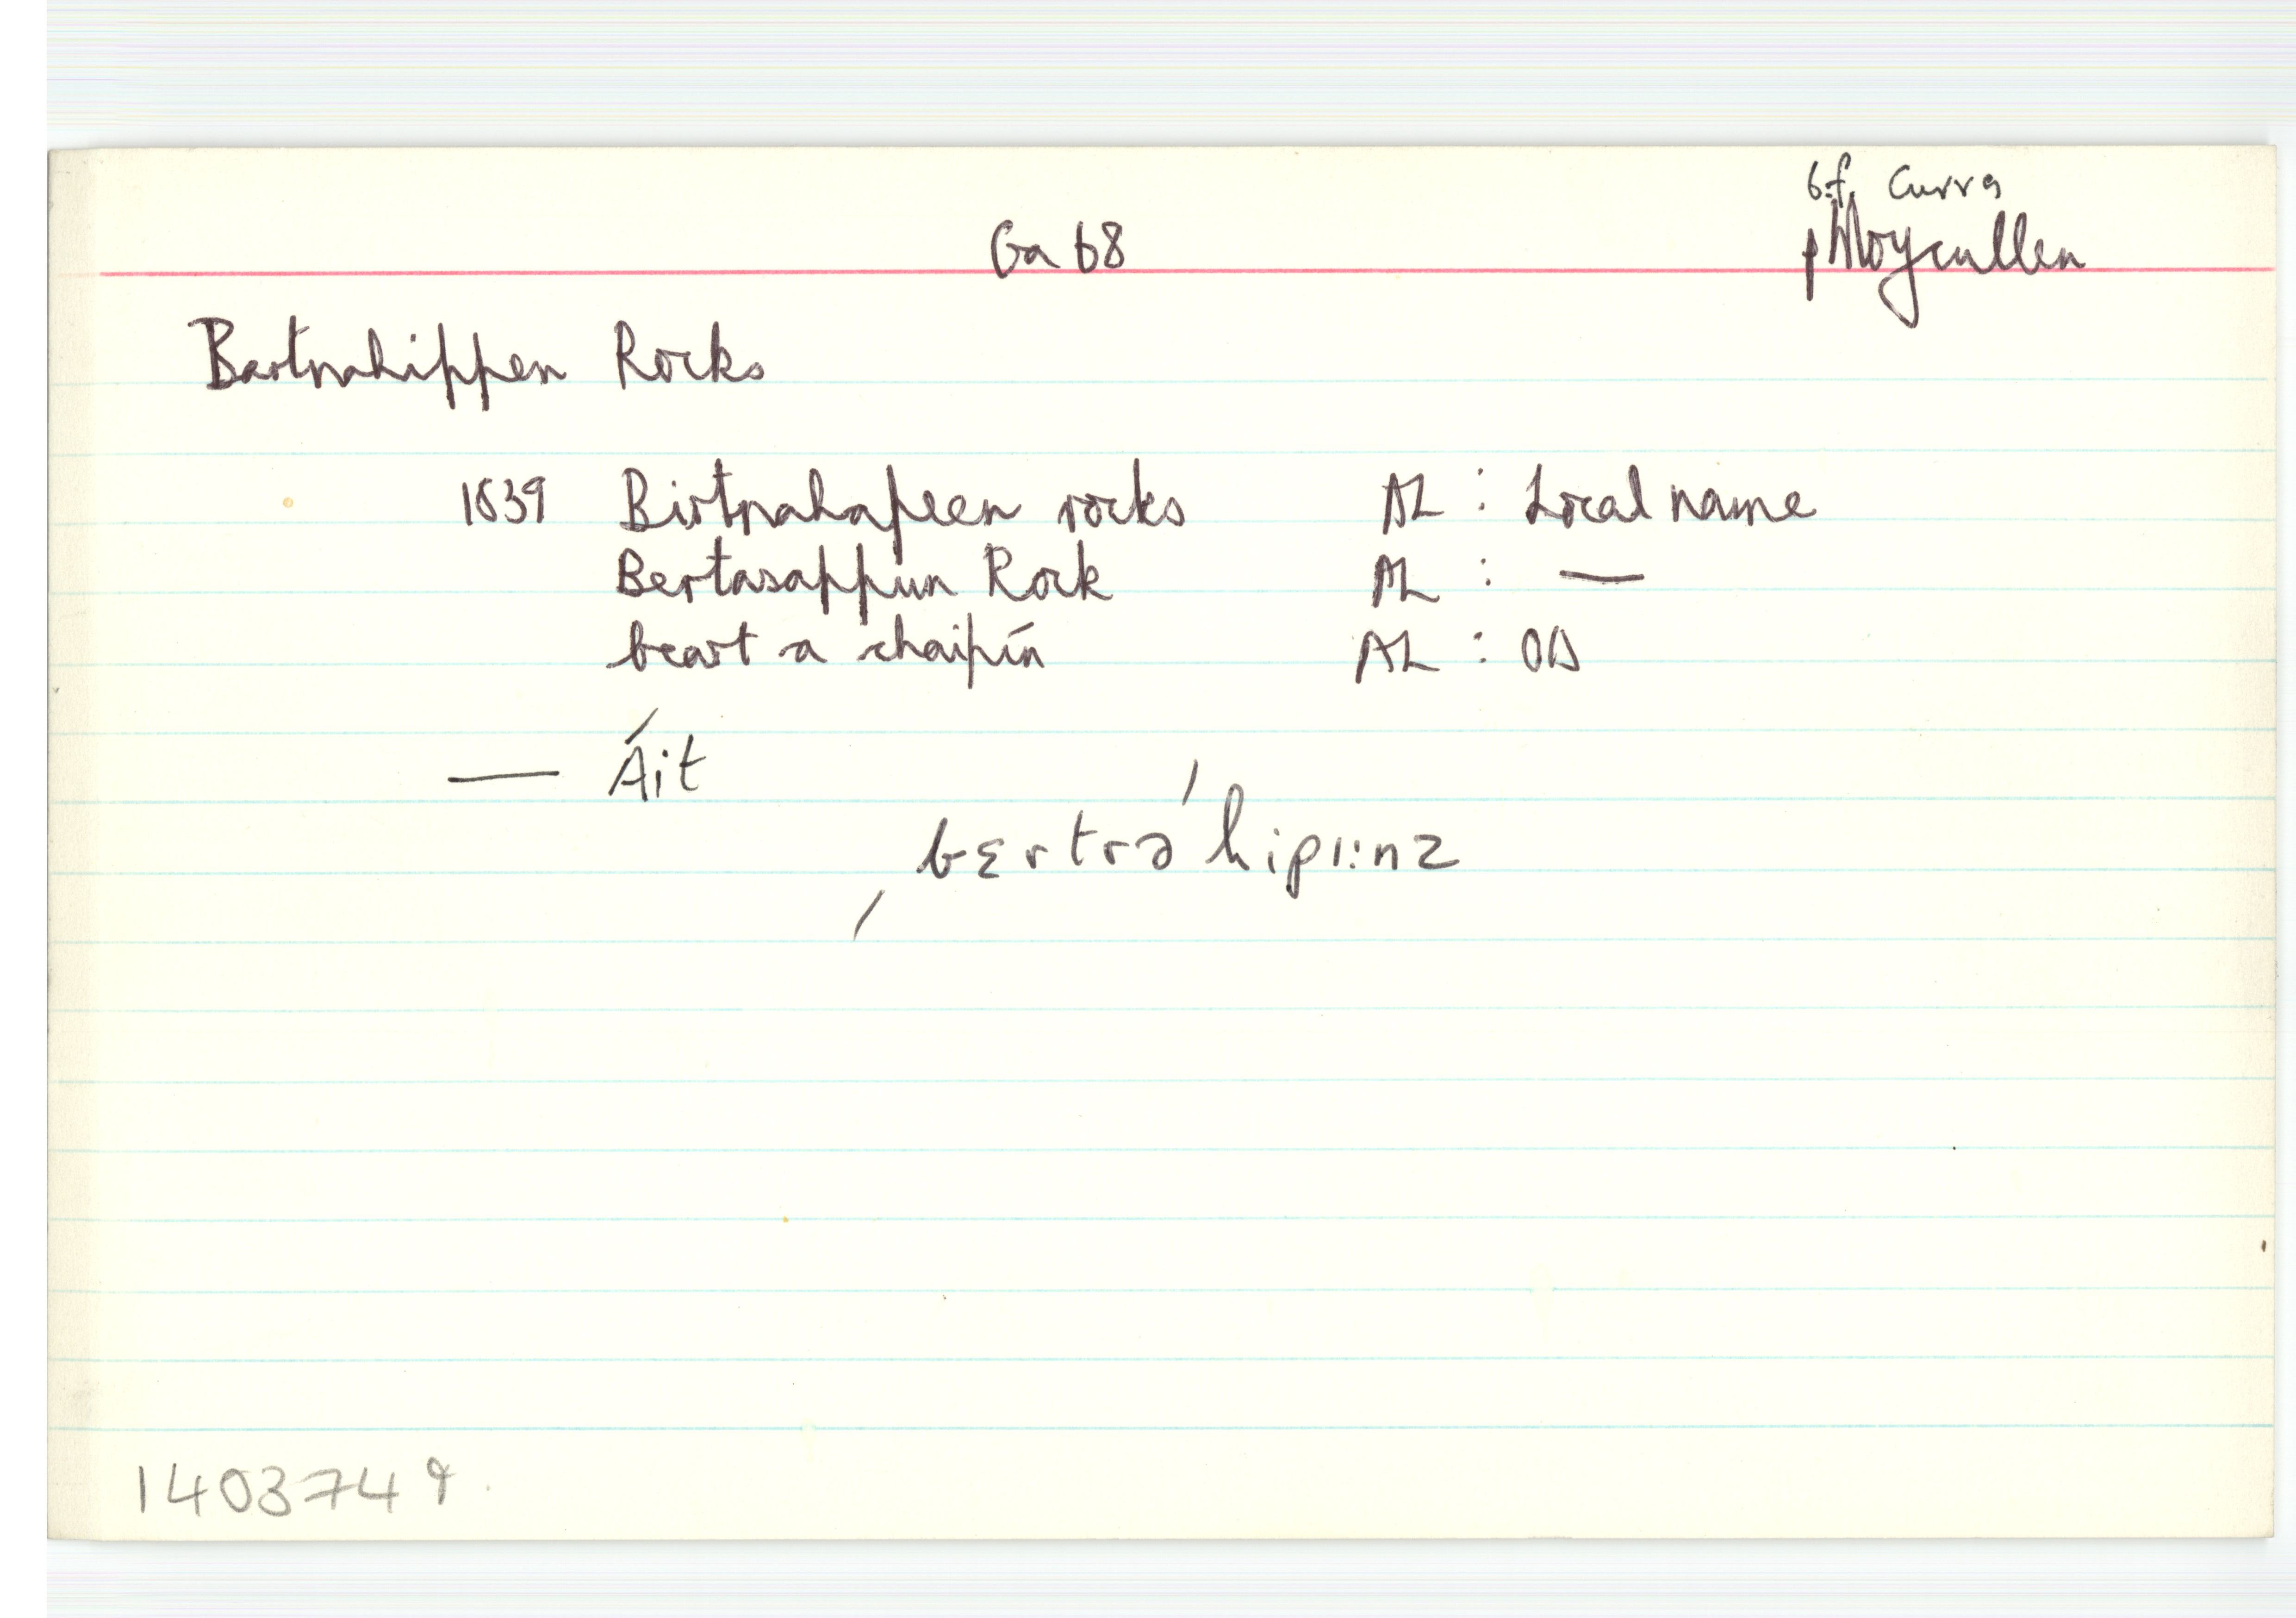 b.f. Curra
Ga 68
p Moycullen
Bartrahippen Rocks
1839 Birtrahapeen rocks AL : Local name
Bertasappun Rock AL : —
beart a chaipín AL : OD
— Áit
bɛrtrə'hipi:nz
1403749.